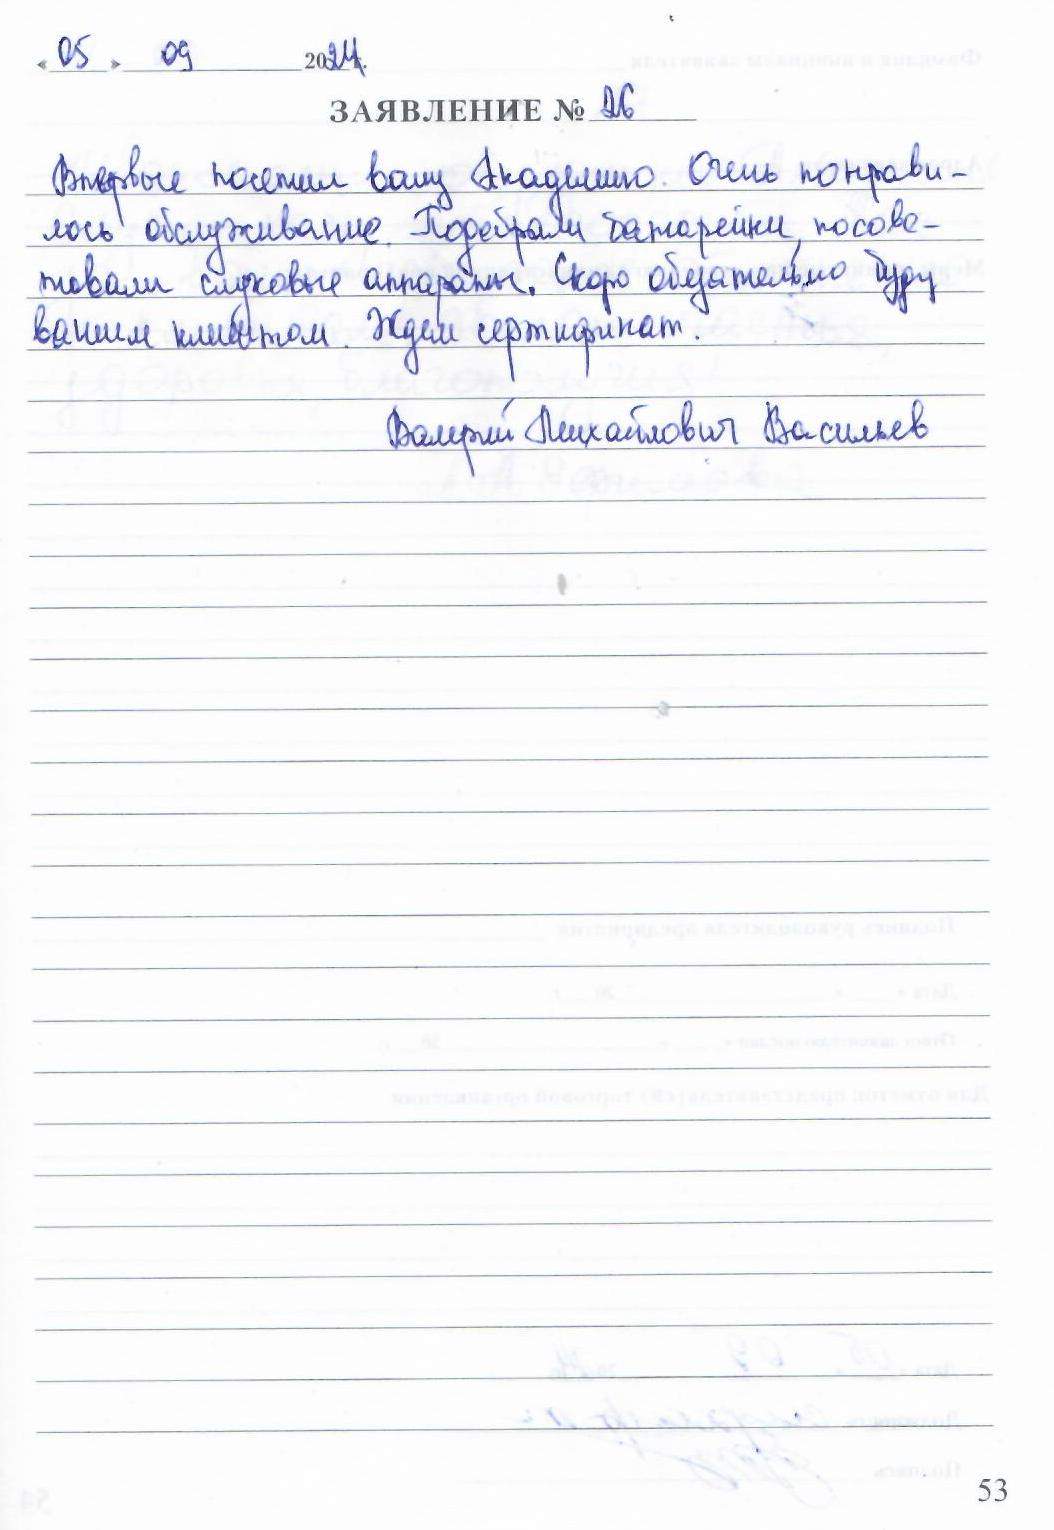 « 05 » 09 2024 г.
ЗАЯВЛЕНИЕ № 26
Впервые посетил вашу Академию. Очень понрави-
лось обслуживание. Подобрали батарейки, посове-
товали слуховые аппараты. Скоро обязательно буду
вашим клиентом. Ждем сертификат.
Валерий Михайлович Васильев
53